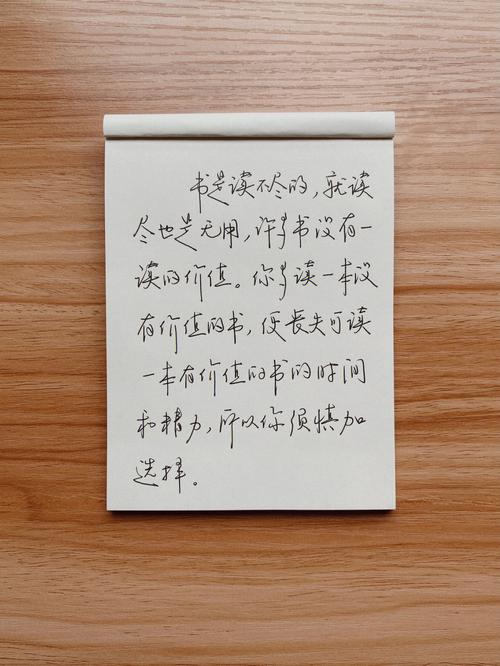 书是读不尽的，就读
尽也是无用，许多书没有一
读的价值。你多读一本没
有价值的书，便丧失可读
一本有价值的书的时间
和精力，所以你须慎加
选择。